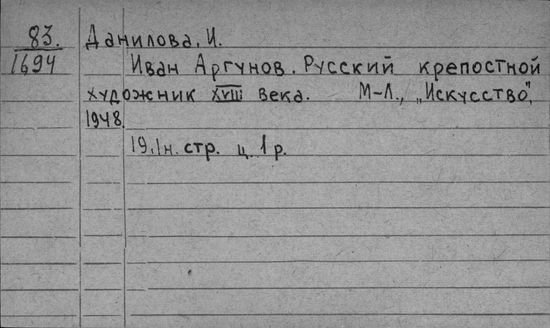 83. Данилова, И.
1694 Иван Аргунов. Русский крепостной
художник XVIII века. М-Л., „Искусство",
1948.
19,1н. стр. ц. 1 р.